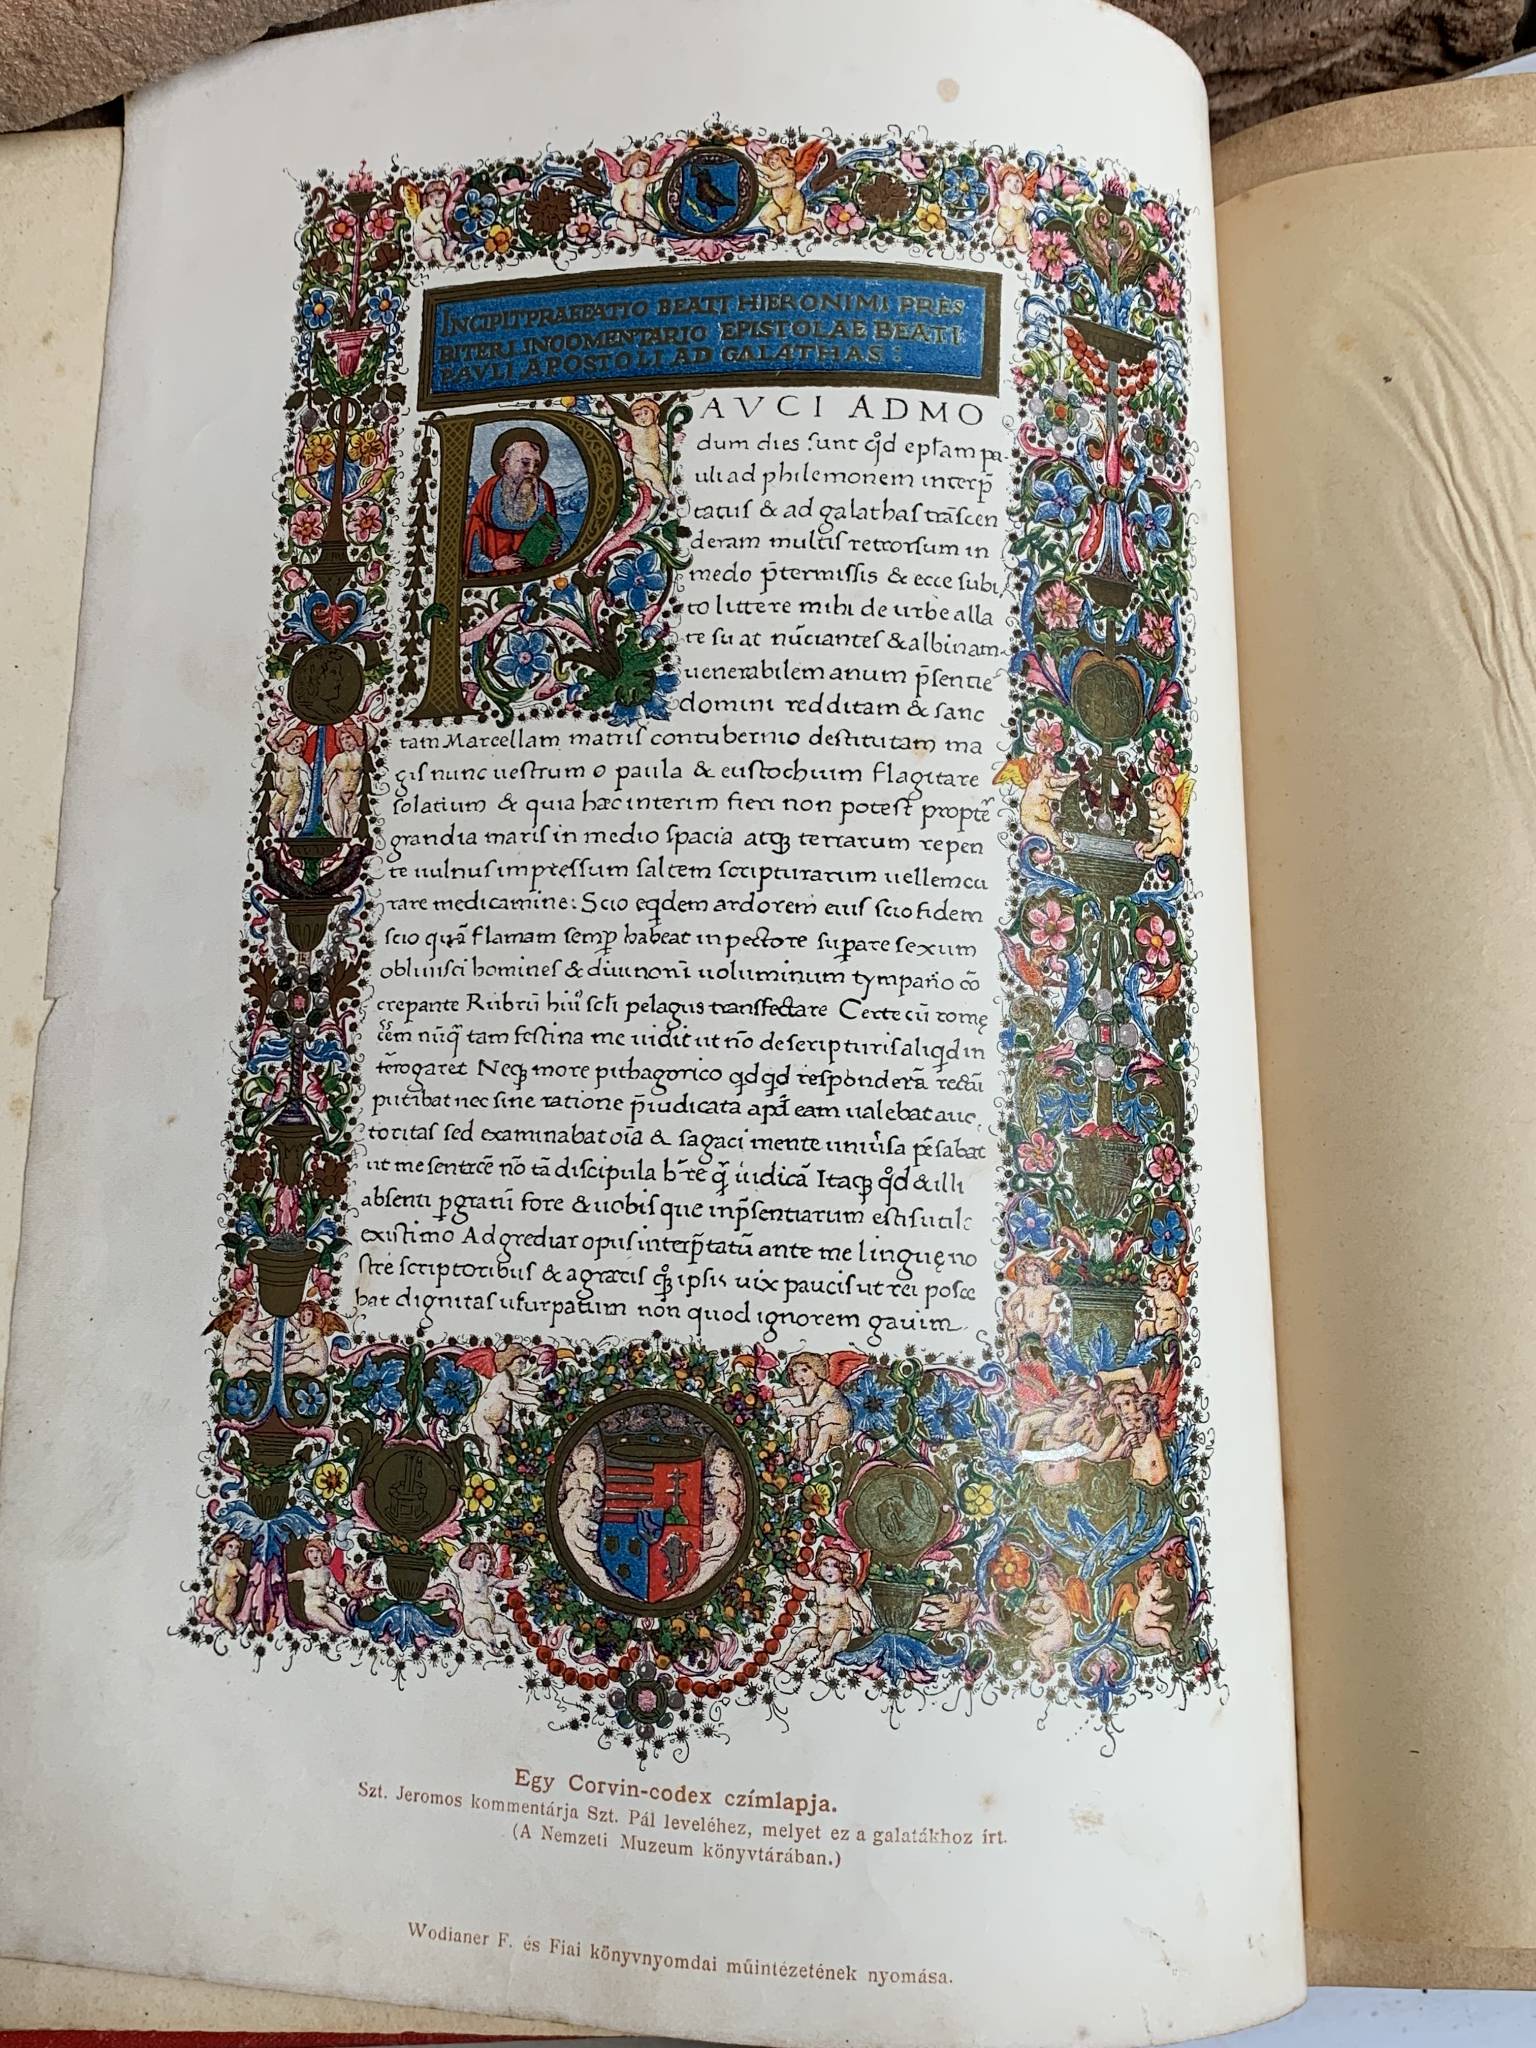 INCIPIT PRAEFATIO BEATI HIERONIMI PRES
BITERI IN COMENTARIO EPISTOLAE BEATI
PAVLI APOSTOLI AD GALATHAS:
PAVCI ADMO
dum dies sunt qd̊ epl̃am pa-
uli ad philemonem interp̃
tatus & ad galathas trãscen
deram multis retrorsum in
medo p̃termissis & ecce subi
to littere mihi de urbe alla
te su at nũciantes & albinam
uenerabilem anum p̃sentie
domini redditam & sanc
tam Marcellam matris contubernio destitutam ma
gis nunc uestrum o paula & eustochium flagitare
solatium & quia hæc interim fieri non potest propte᷈
grandia maris in medio spacia atqꝫ terrarum repen
te uulnus impressum saltem scripturarum uellem cu
rare medicamine: Scio eqdem ardorem eius scio fidem
scio quã flamam semꝑ habeat in pectore suꝑare sexum
obliuisci homines & diuinoꝝ uoluminum tympano cõ
crepante Rubrũ hui᾿ scł̃i pelagus transfectare Certe cũ rome
eẽm nũq̃ tam festina me uidit ut nõ de scripturis aliqd in
tẽrogaret Neqꝫ more pithagorico qdqd responderã rectũ
putabat nec sine ratione p̃iudicata apd̃ eam ualebat auc
toritas sed examinabat oĩa & sagaci mente uniũsa p̃sabat
ut me sentirẽ nõ tã discipula h̃re q̃ iudicẽ Itaqꝫ qd̊ & illi
absenti ꝑgratũ fore & uobis que in p̃sentiarum estis utile
existimo Adgrediar opus interp̃tatũ ante me linguę no
strẽ scriptoribus & a grẽcis qꝫ ipsis uix paucis ut rei posce
bat dignitas usurpatum non quod ignorem gauim
Egy Corvin-codex czímlapja.
Szt. Jeromos kommentárja Szt. Pál leveléhez, melyet ez a galatákhoz írt.
(A Nemzeti Muzeum könyvtárában.)
Wodianer F. és Fiai könyvnyomdai műintézetének nyomása.